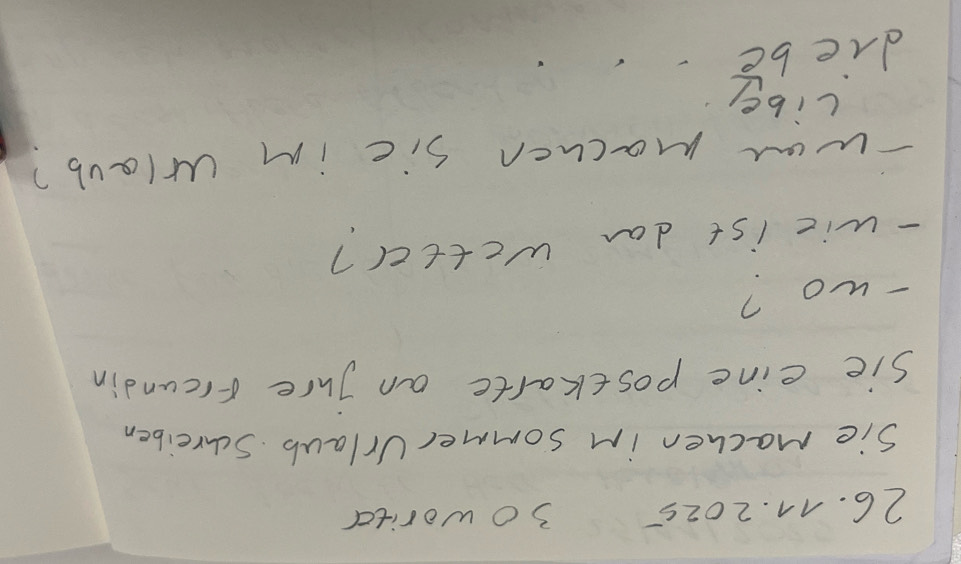 26.11.2025 30 woriter
Sie machen im sommer Urlaub. Schreiben
Sie eine postkarte an jhre Freundin
- wo ?
- wie ist das wetter?
- was machen sie im Urlaub?
Libe